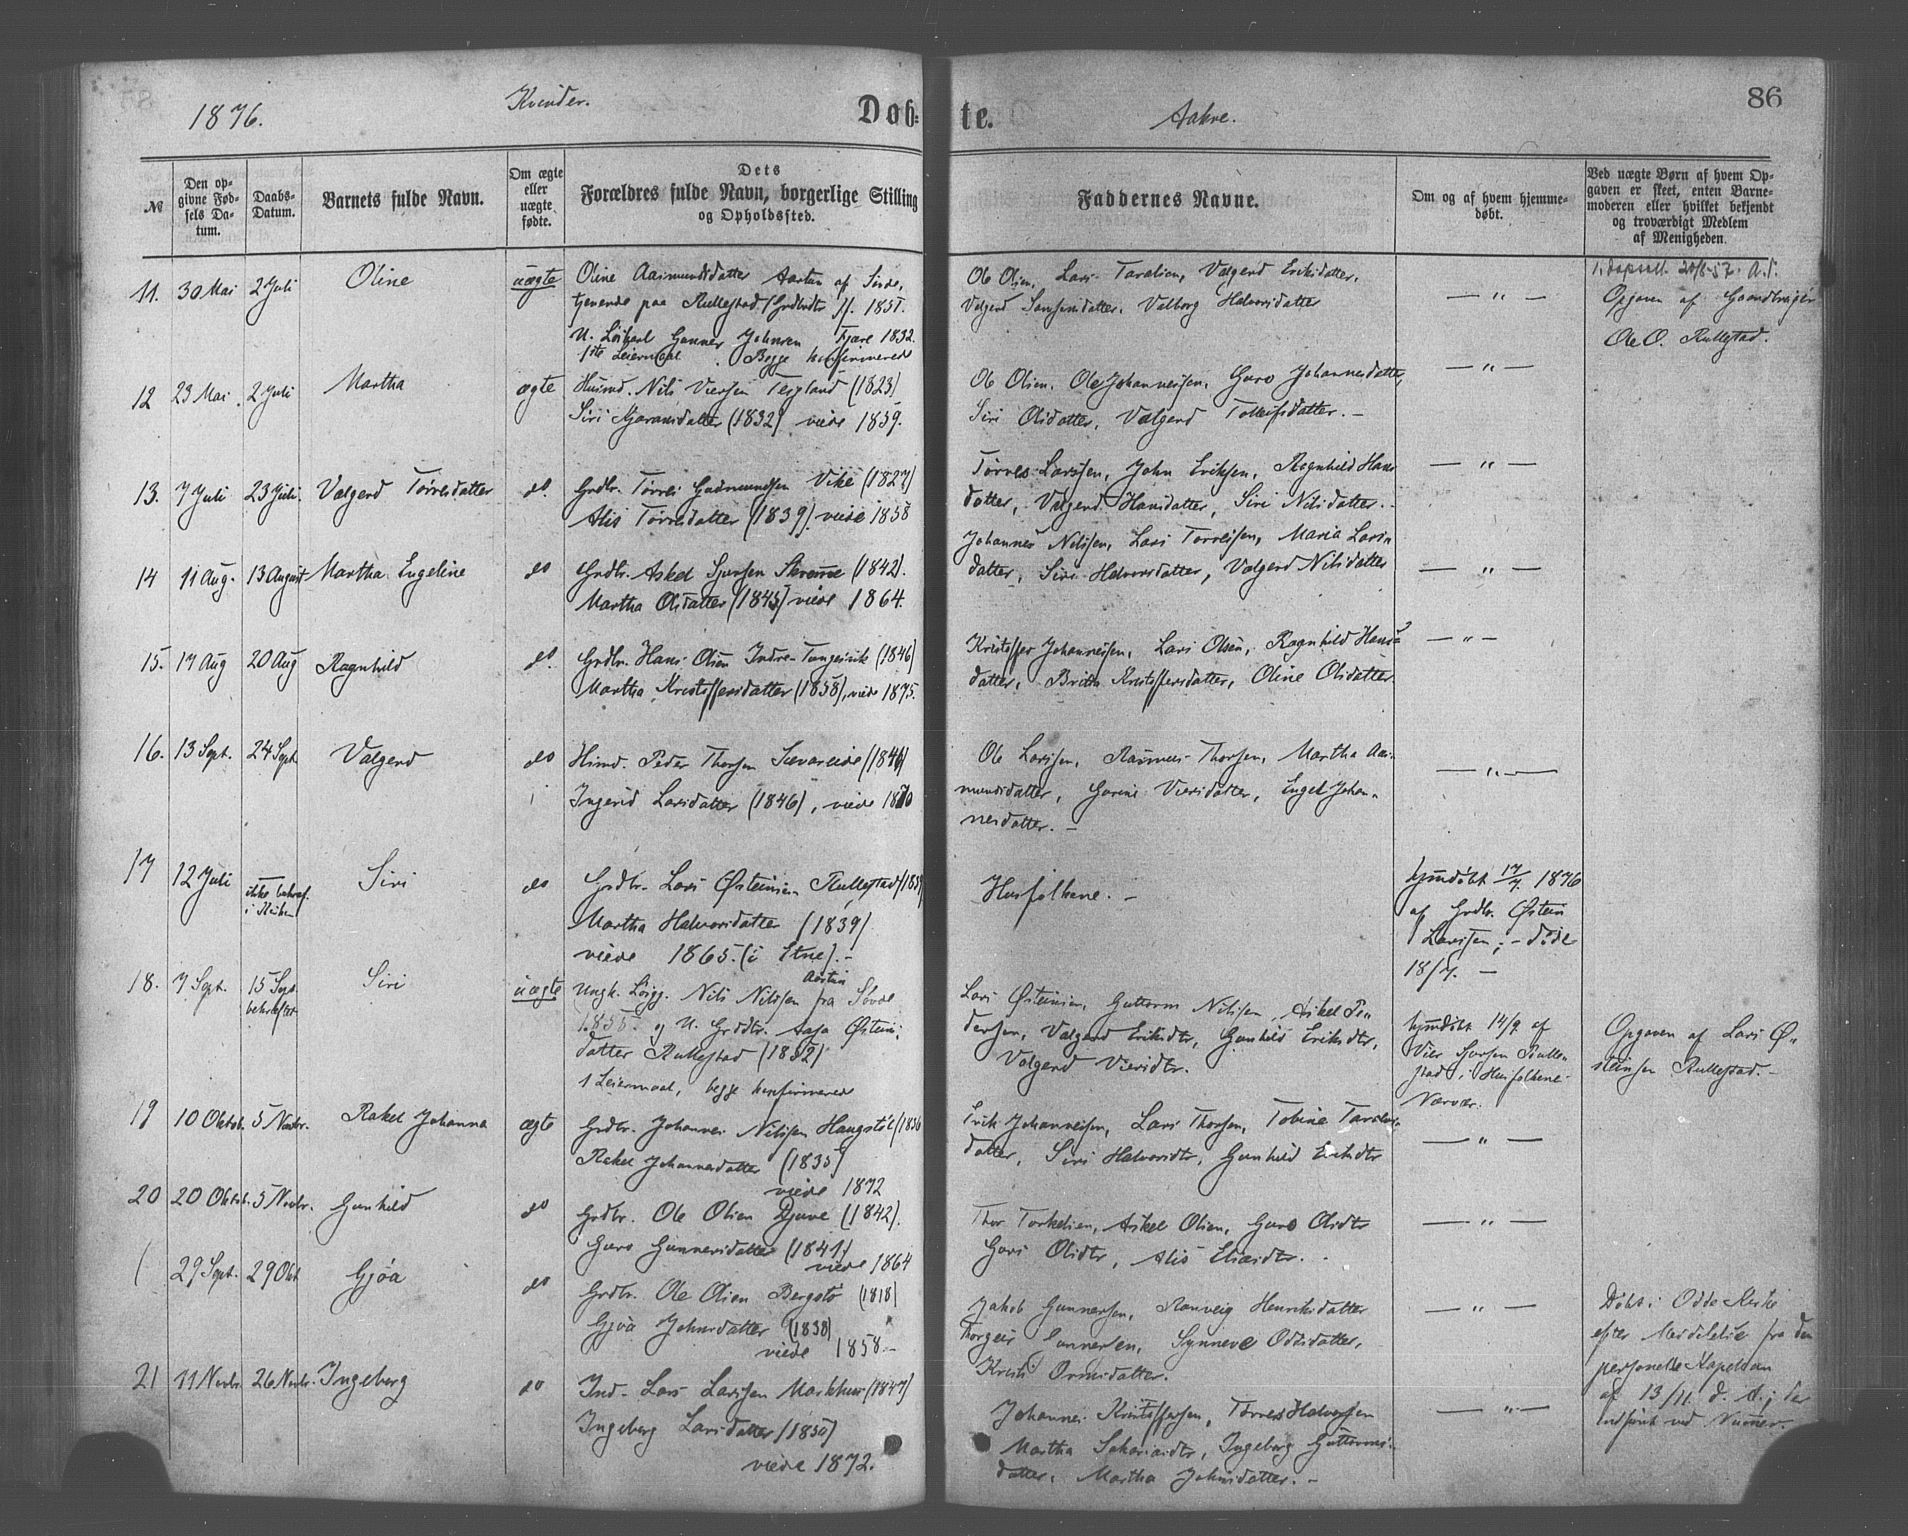 1876.
Kvinder.
Døb-
te.
Aakre.
86
№
Den op-
givne Fød-
sels Da-
tum.
Daabs-
Datum.
Barnets fulde Navn.
Om ægte
eller
uægte
fødte.
Dets
Forældres fulde Navn, borgerlige Stilling
og Opholdssted.
Faddernes Navne.
Om og af hvem hjemme-
døbt.
Ved uægte Børn af hvem Op-
gaven er skeet, enten Barne-
moderen eller hvilket bekjendt
og troværdigt Medlem
af Menigheden.
11. 30 Mai 2 Juli Oline uægte Oline Aasmundsdatter
tjenende paa Rullestad
Gunner Johnsen Fjære 1832.
1ste Leiermaal. Begge konfirmerede
Ole Olsen, Lars Taralsen, Valgerd Eriksdatter,
Valgerd Samsonsdatter, Valborg Halvorsdatter
— " —
Opgaven af Gaardbruger
Ole O. Rullestad.
12 23 Mai 2 Juli Martha ægte Husmd. Nils Viersen Teigland (1823)
Siri (1832) viede 1859.
Ole Olsen, Ole Johannessen, Guro Johannesdatter,
Siri Olsdatter, Valgerd Tolleifsdatter. —
— " —
13. 7 Juli 23 Juli. Valgerd Tørresdatter do. Grdbr. Tørres Gudmundsen Vike (1827)
Alis Tørresdatter (1839) viede 1858
Tørres Larssen, John Eriksen, Ragnhild Hans
datter, Valgerd Hansdatter, Siri Nilsdatter. -
— " —
14 11 Aug. 13 August Martha Engeline do Grdbr. Askel Sjursen Skromme (1842).
Martha Olsdatter (1845) viede 1864.
Johannes Nilssen, Lars Tørressen, Maria Lars-
datter, Siri Halvorsdatter, Valgerd Nilsdatter
— " —
15. 17 Aug 20 Aug Ragnhild do. Grdbr. Hans Olsen Indre-Tungesvik (1846)
Martha Kristoffersdatter (1858), viede 1875.
Kristoffer Johannessen, Lars Olsen, Ragnhild Hans-
datter, Britha Kristoffersdatter, Oline Olsdatter.
— " —
16. 13 Sept. 24 Sept. Valgerd do Husmd. Peder Thorsen Sævareide (1846)
Ingerid Larsdatter (1846), viede 1870
Ole Larssen, Rasmus Thorsen, Martha Aas-
mundsdatter, Gurine Viersdatter, Engel Johan-
nesdatter. —
— " —
17 12 Juli — Siri do Grdbr. Lars Østeinsen Rullestad
ikke bekræf.
i Kirken
Martha Halvorsdatter (1839)
viede 1865. (i Etne). -
Husfolkene. -
hjemdøbt 17/7 1876
af Grdbr. Østein
Larssen; - døde
18/7. —
18. 7 Sept. 15 Sept. Siri uægte Ungk. Nils Nilssen fra Søvde
bekræftet
1855. og U. Grddtr. Aasa Østeins-
datter Rullestad (1852)
1 Leiermaal, begge konfirmerede
Lars Østeinsen, Guttorm Nilssen, Askel Pe-
dersen, Valgerd Eriksdtr, Gunhild Eriksdtr,
Valgerd Viersdtr.
hjemdøbt 14/9 af
Vier Sjursen Rulle-
stad i Husfolkene-
Nærvær.
Opgaven af Lars Ø-
steinsen Rullestad. -
19 10 Oktob. 5 Novbr. Rakel Johanna ægte Grdbr. Johannes Nilssen Haugstøl (1836
Rakel Johannesdatter (1835)
viede 1872
Erik Johannessen, Lars Thorsen, Tobine Taralds-
datter, Siri Halvorsdtr, Gunhild Eriksdtr
— " —
20 20 Oktob. 5 Novbr. Gunhild do Grdbr. Ole Olsen Djuve (1842).
Guro Gunnersdatter (1841)
viede 1864
Thor Torkelsen, Askel Olsen, Guro Olsdtr
Guri Olsdtr, Alis Eliasdtr. -
— " —
29 Sept. 29 Okt Gjøa do Grdbr. Ole Olsen Bergstø (1818)
Gjøa Johnsdatter (1838)
viede 1858. —
Jakob Gunnersen, Ranveig Henriksdatter
Thorgeir Gunnersen, Synneve Oddsdatter,
Kristi Ormsdatter.
— " —
Døbt i Odde Kirke
efter Meddelelse fra den
personelle Kapellan
af 13/11 d. A.; der
indført ved Numer.
21 11 Novbr. 26 Novbr. Ingeborg do Ind. Lars Larssen Markhus (1847)
Ingeborg Larsdatter (1850)
viede 1872.
Johannes Kristoffersen, Tørres Halvorsen
Martha Sakariasdtr, Ingeborg Guttorms-
datter, Martha Johnsdatter. -
— " —